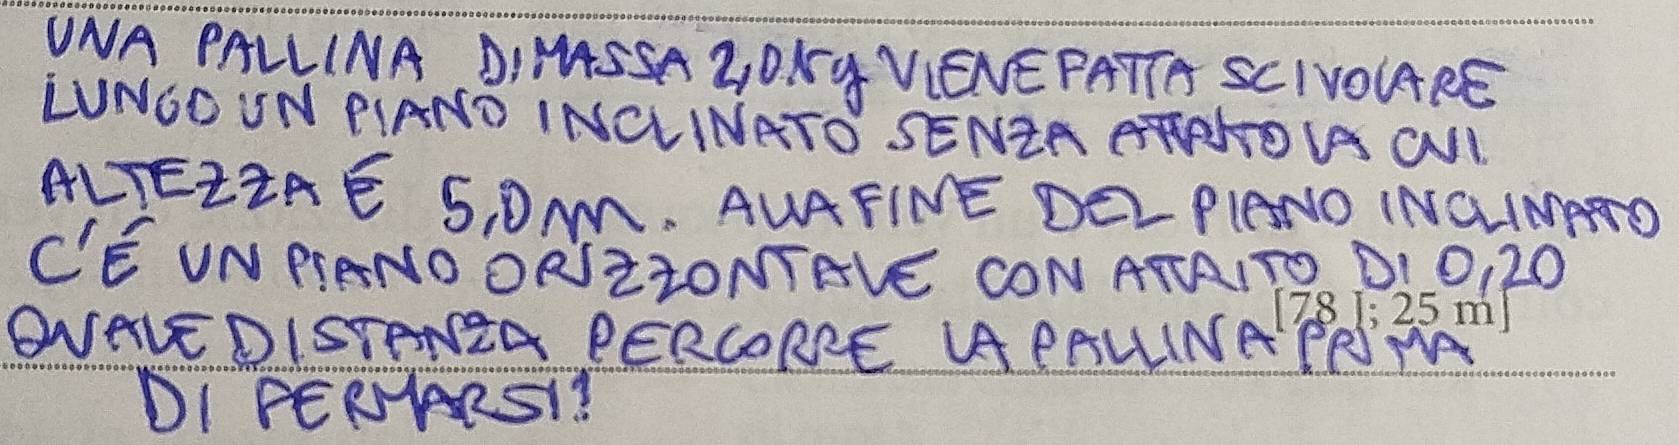 UNA PALLINA DI MASSA 2,0 Kg VIENE FATTA SCIVOLARE
LUNGO UN PIANO INCLINATO SENZA ATTRITO LA CUI
ALTEZZA É 5,0 m. ALLA FINE DEL PIANO INCLINATO
C'É UN PIANO ORIZZONTALE CON ATTRITO DI 0,20
[78 J; 25 m]
QUALE DISTANZA PERCORRE LA PALLINA PRIMA
DI FERMARSI?